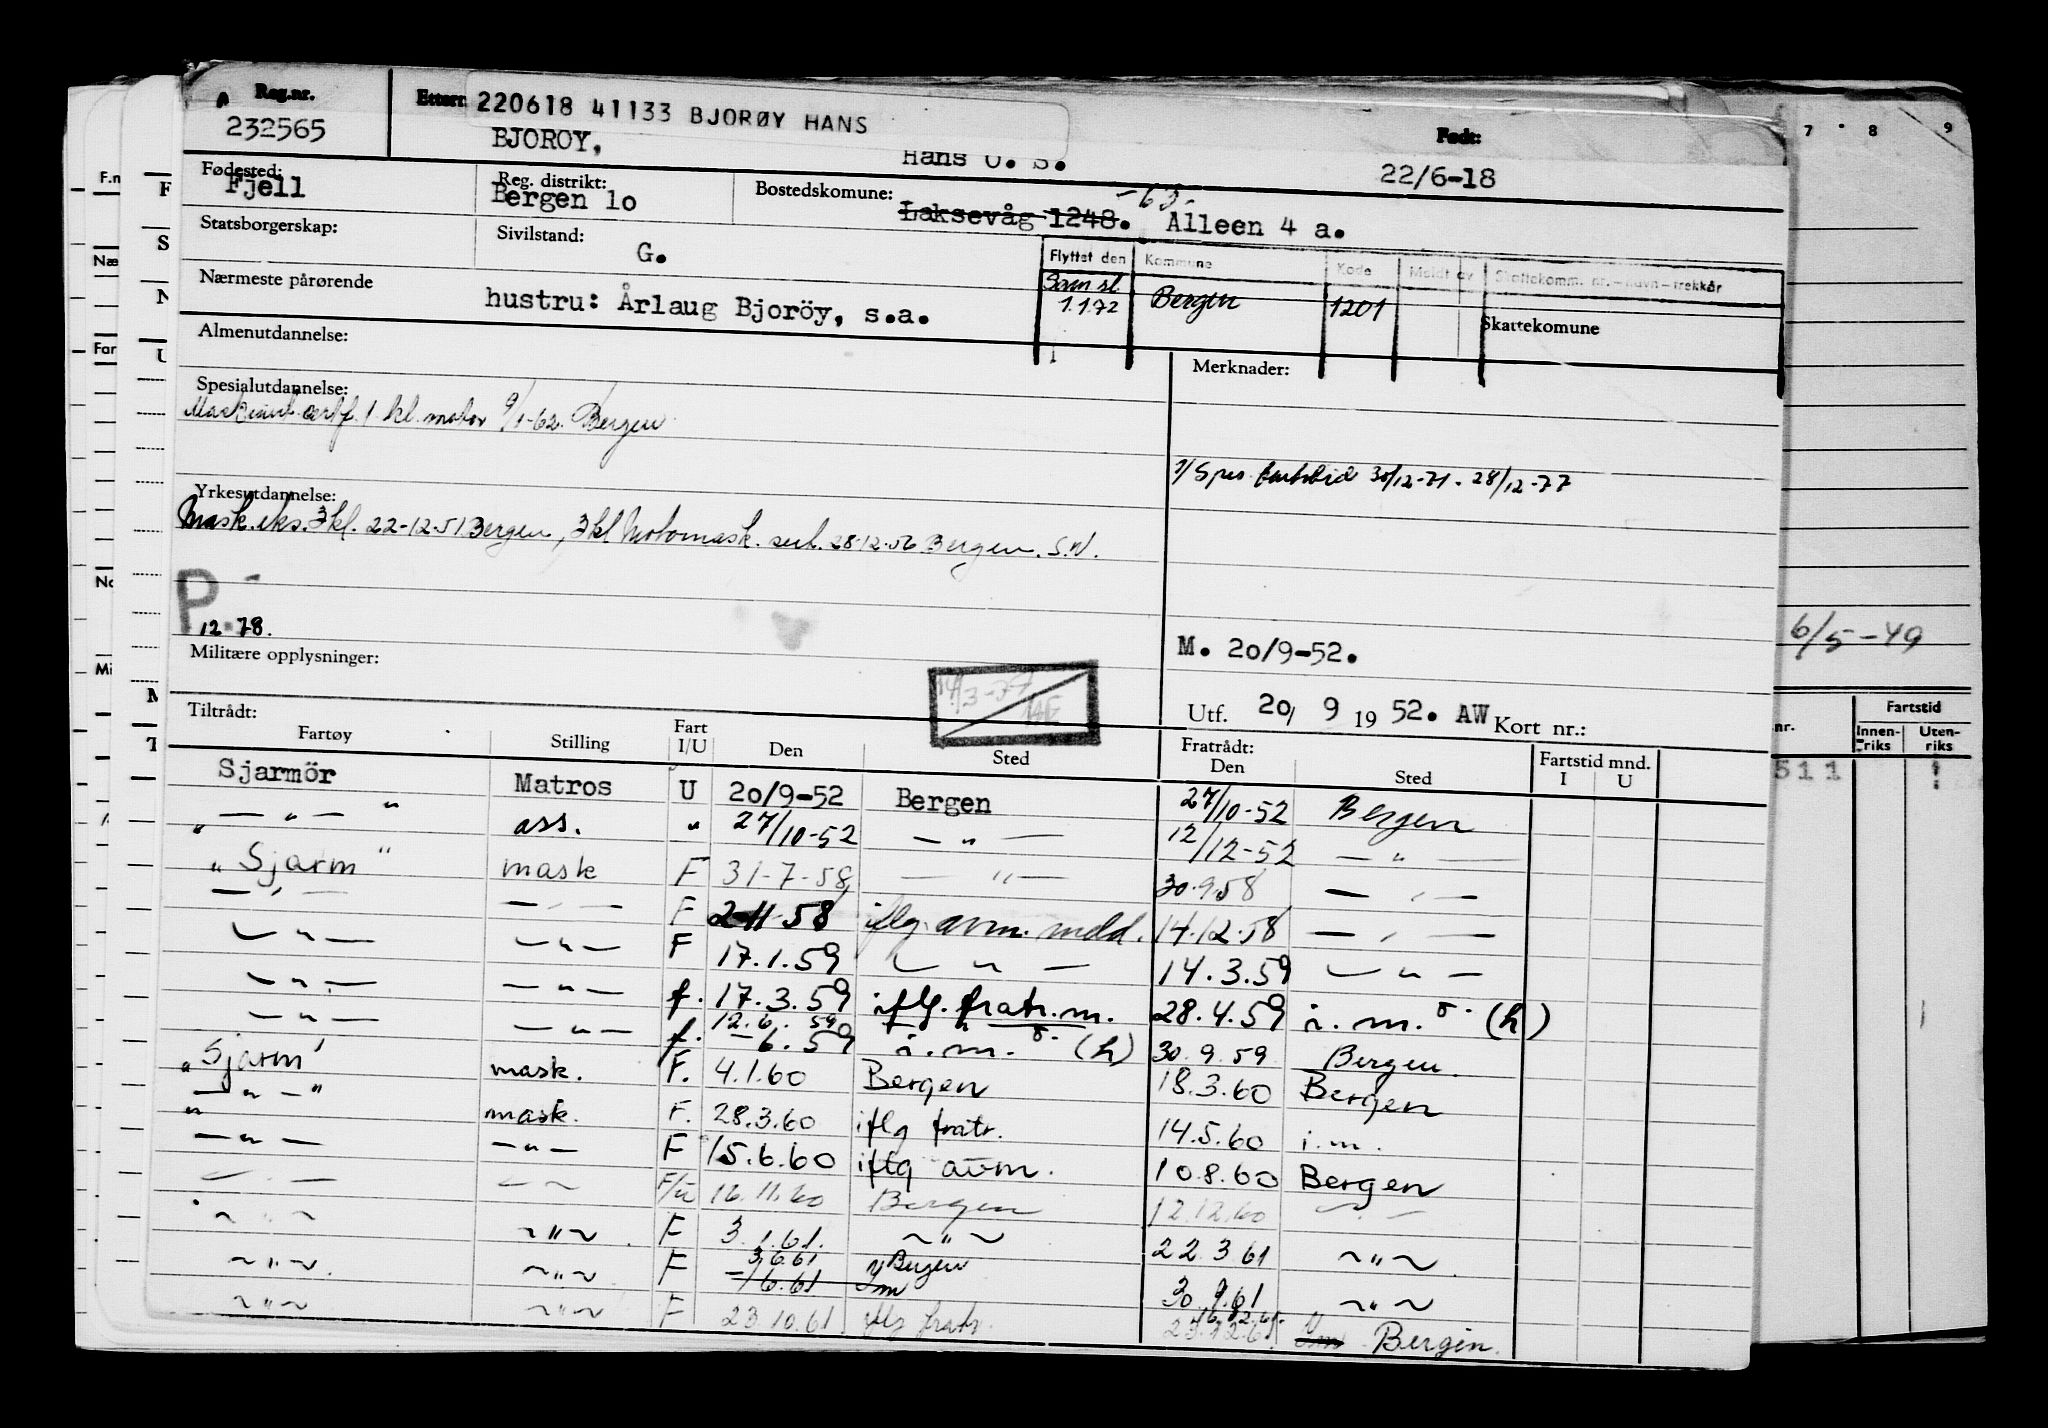 Reg.nr.
232565
220618 41133 BJORØY HANS
BJOROY, Hans O. S.
Født:
22/6-18
Fødested:
Fjell
Reg. distrikt:
Bergen 1o
Bostedskomune:
Laksevåg 1248. -63- Alleen 4 a.
Statsborgerskap:
Sivilstand:
G.
Flyttet den Kommune Kode Meldt av Skattekomm. nr.-navn-trekkår
Sam sl
1.1.72 Bergen 1201
Skattekomune
Nærmeste pårørende
hustru: Årlaug Bjoröy, s.a.
Almenutdannelse:
Merknader:
Spesialutdannelse:
Maskinist certf. 1 kl. motor 9/1-62. Bergen
1/ Spes. fartstid 30/12-71 - 28/12-77
Yrkesutdannelse:
Mask.eks. 3kl. 22-12-51 Bergen, 3kl Motormask. sert. 28-12-56 Bergen. S.W.
P -
12-78.
Militære opplysninger:
14/3-77
M. 20/9-52.
Utf. 20/ 9 19 52. AW Kort nr.:
Tiltrådt:
Fartøy Stilling Fart I/U Den Sted
Fratrådt:
Den Sted
Fartstid mnd.
I U
Sjarmör Matros U 20/9-52 Bergen 27/10-52 Bergen
" — " — " ass. " 27/10-52 — " — 12/12-52 — " —
"Sjarm" mask F 31-7-58 — " — 30.9.58 — " —
— " — — " — F 2-11-58 iflg. avm. meld. 14.12.58 — " —
— " — — " — F 17.1.59 — " — 14.3.59 — " —
— " — — " — f. 17.3.59 iflg. fratr.m. 28.4.59 i.m. (h)
— " — — " — f. 12.6.59
-6.59 i.m. (h) 30.9.59 Bergen.
"Sjarm" mask. F. 4.1.60 Bergen 18.3.60 Bergen
" — " — " mask. F. 28.3.60 iflg fratr. 14.5.60 i.m.
— " — — " — F 15.6.60 iflg avm. 10.8.60 Bergen
— " — — " — F/u 16.11.60 Bergen 12.12.60 — " —
~ " ~ ~ " ~ F 3.1.61. ~ " ~ 22.3 61 ~ " ~
~ " ~ ~ " ~ F 3.6.61 Bergen
-/6.61 im 30.9.61 ~ " ~
~ " ~ ~ " ~ F 23.10.61 iflg fratr. 16.12.61.
23.12.61. im Bergen.
7 8 9
6/5-49
nr.
Fartstid
Innen-riks Uten-riks
511
F.n
Næ
Far
Mi
F
S
N
U
M
T